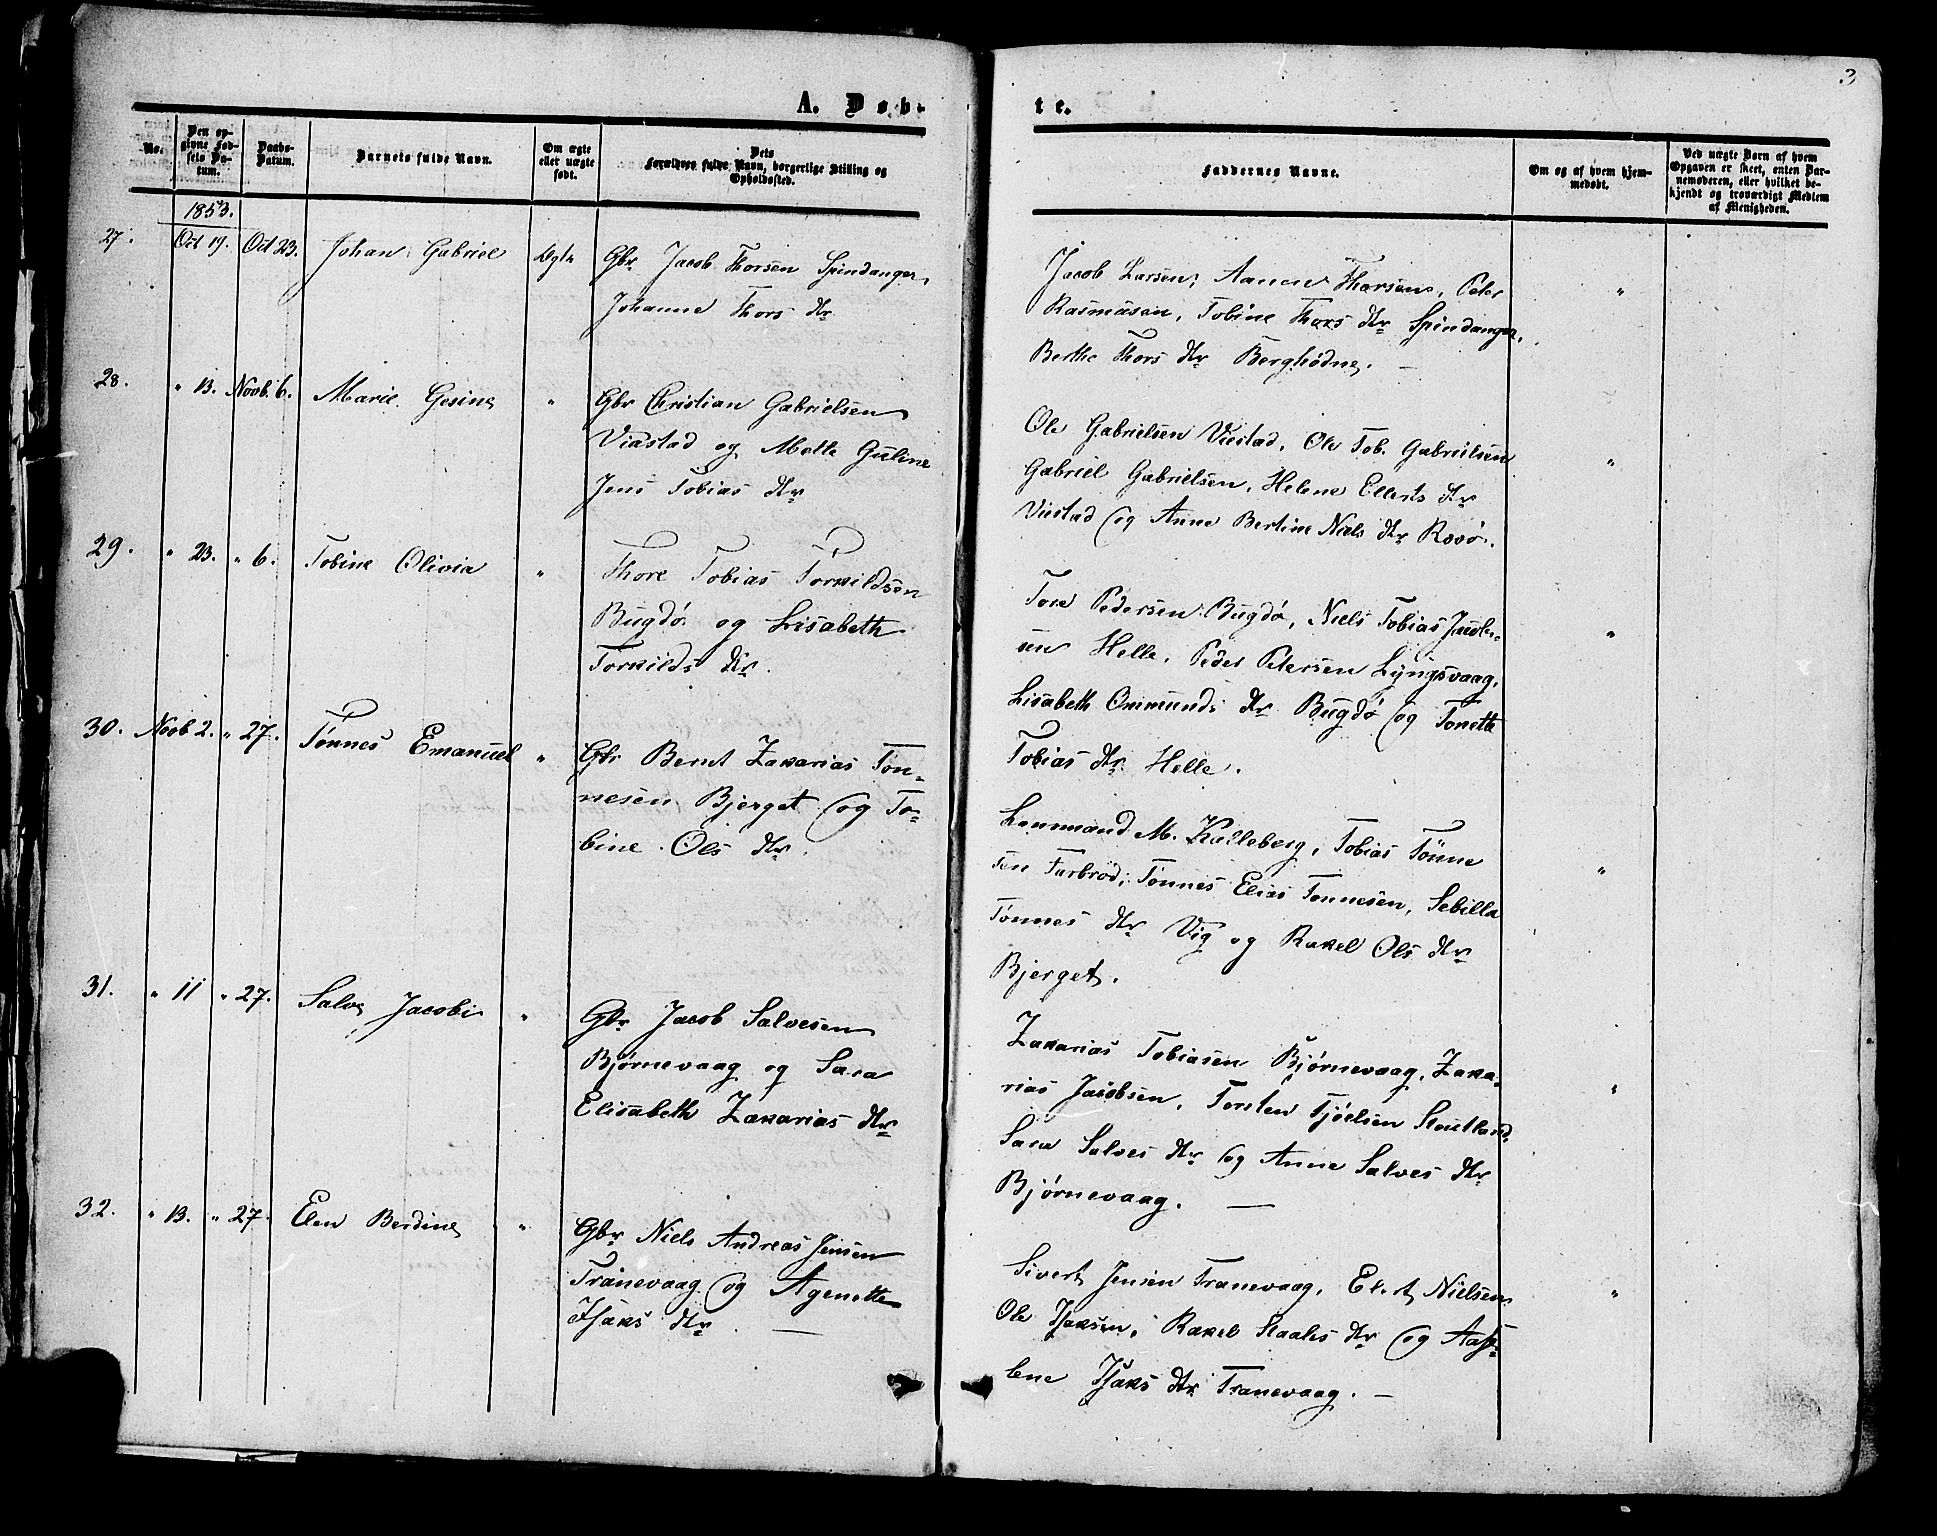 3
A. Døb-
te.
No.
Den opgivne Fødsels Datum.
Daabs-Datum.
Barnets fulde Navn.
Om ægte eller uægte født.
Dets Forældres fulde Navn, borgerlige Stilling og Opholdssted.
Faddernes Navne.
Om og af hvem hjemmedøbt.
Ved uægte Børn af hvem Opgaven er skeet, enten Barnemoderen, eller hvilket bekjendt og troværdigt Medlem af Menigheden.
1853.
27. Oct 19. Oct 23. Johan Gabriel Ægte
Gbr Jacob Thorsen Spindanger,
Johanne Thors dtr
Jacob Larsen, Aanen Thorsen, Peter
Rasmusen, Tobine Thors dtr Spindanger,
Berthe Thors dtr Berghødne. —
"
28. " 13. Novb. 6. Marie Gesine "
Gbr Christian Gabrielsen
Viestad og Mette Guline
Jens Tobias dtr
Ole Gabrielsen Viestad, Ole Tob. Gabrielsen
Gabriel Gabrielsen, Helene Ellerts dtr
Viestad og Anne Bertine Niels dtr Rovø.
"
29. " 23. " 6. Tobine Olivia "
Thore Tobias Torkildsen
Bugdø og Lisabeth
Torkilds dtr.
Tore Pedersen Bugdø, Niels Tobias Jacob-
sen Helle, Peder Petersen Lyngsvaag,
Lisabeth Ommunds dtr Bugdø og Tonette
Tobias dtr Helle.
"
30. Novb 2. " 27. Tønnes Emanuel "
Gbr Bernt Zakarias Tøn-
nesen Bjerget og To-
bine Ols dtr.
Lommand M. Kalleberg, Tobias Tønne
sen Farbrod, Tønnes Elias Tønnesen, Sebilla
Tønnes dtr Vig og Rakel Ols dtr
Bjerget.
"
31. " 11 " 27. Salve Jacobi "
Gbr Jacob Salvesen
Bjørnevaag og Sara
Elisabeth Zakarias dtr
Zakarias Tobiasen Bjørnevaag, Zaka-
rias Jacobsen, Torsten Tjøelsen
Sara Salves dtr og Anne Salves dtr
Bjørnevaag. —
"
32. " 13. " 27. Elen Berdine "
Gbr Niels Andreas Jensen
Tranevaag og Agenette
Isaks dtr. —
Sivert Jensen Tranevaag, Elert Nielsen
Ole Isaksen, Rakel Staales dtr og Aase-
lene Isaks dtr Tranevaag. —
"